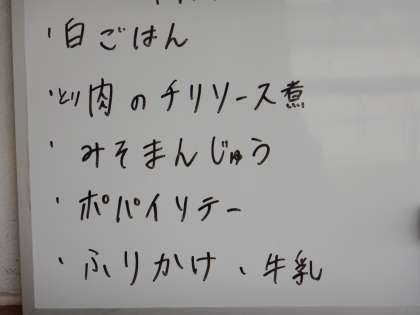 ・白ごはん
・とり肉のチリソース煮
・みそまんじゅう
・ポパイソテー
・ふりかけ、牛乳